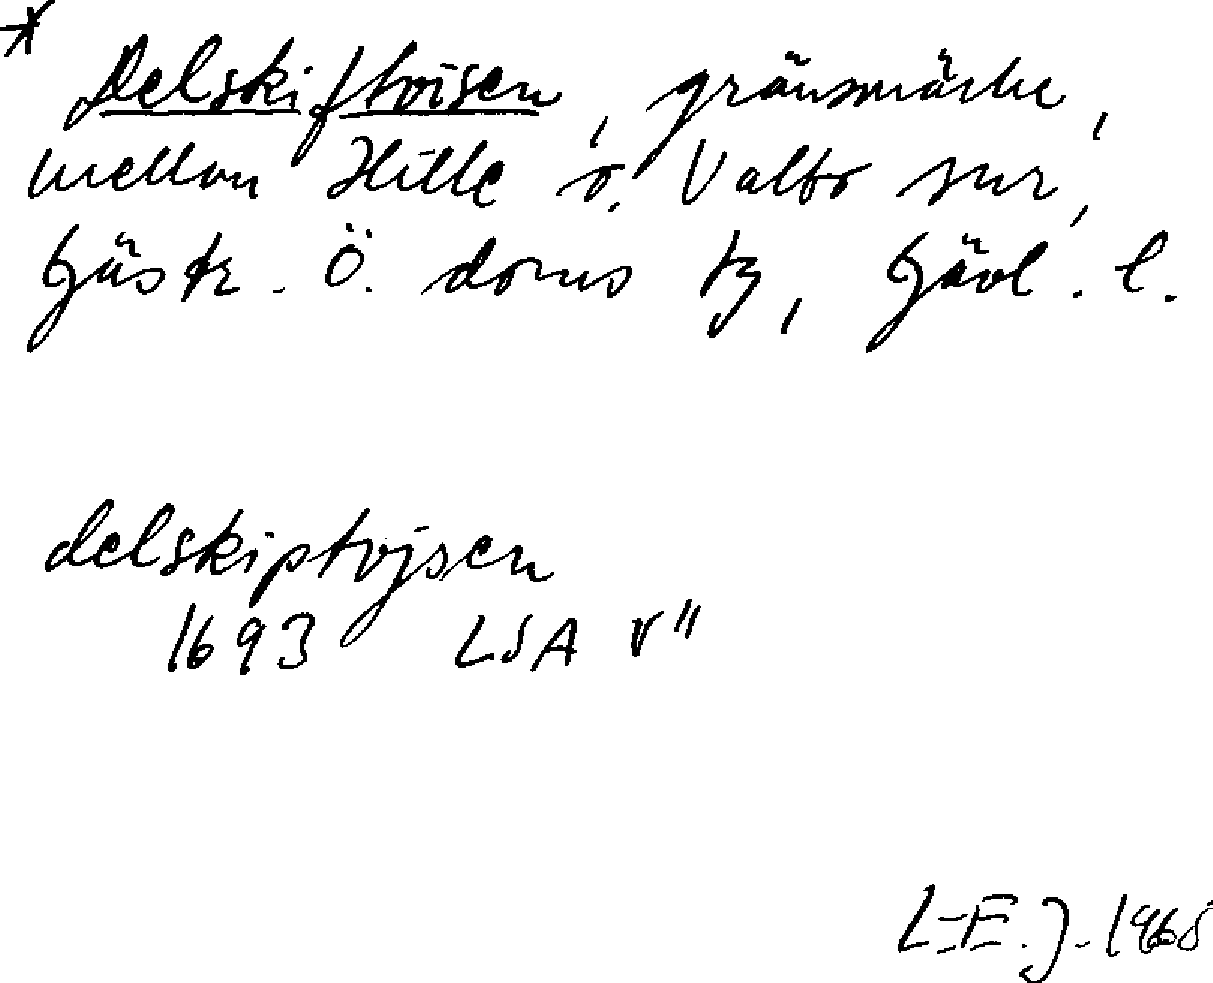 * Delskiftvisen, gränsmärke,
mellan Hille o. Valbo snr,
Gästr. Ö. doms tg, Gävl. l.
delskiptvjsen
1693 LSA V"
L-E. J. 1968